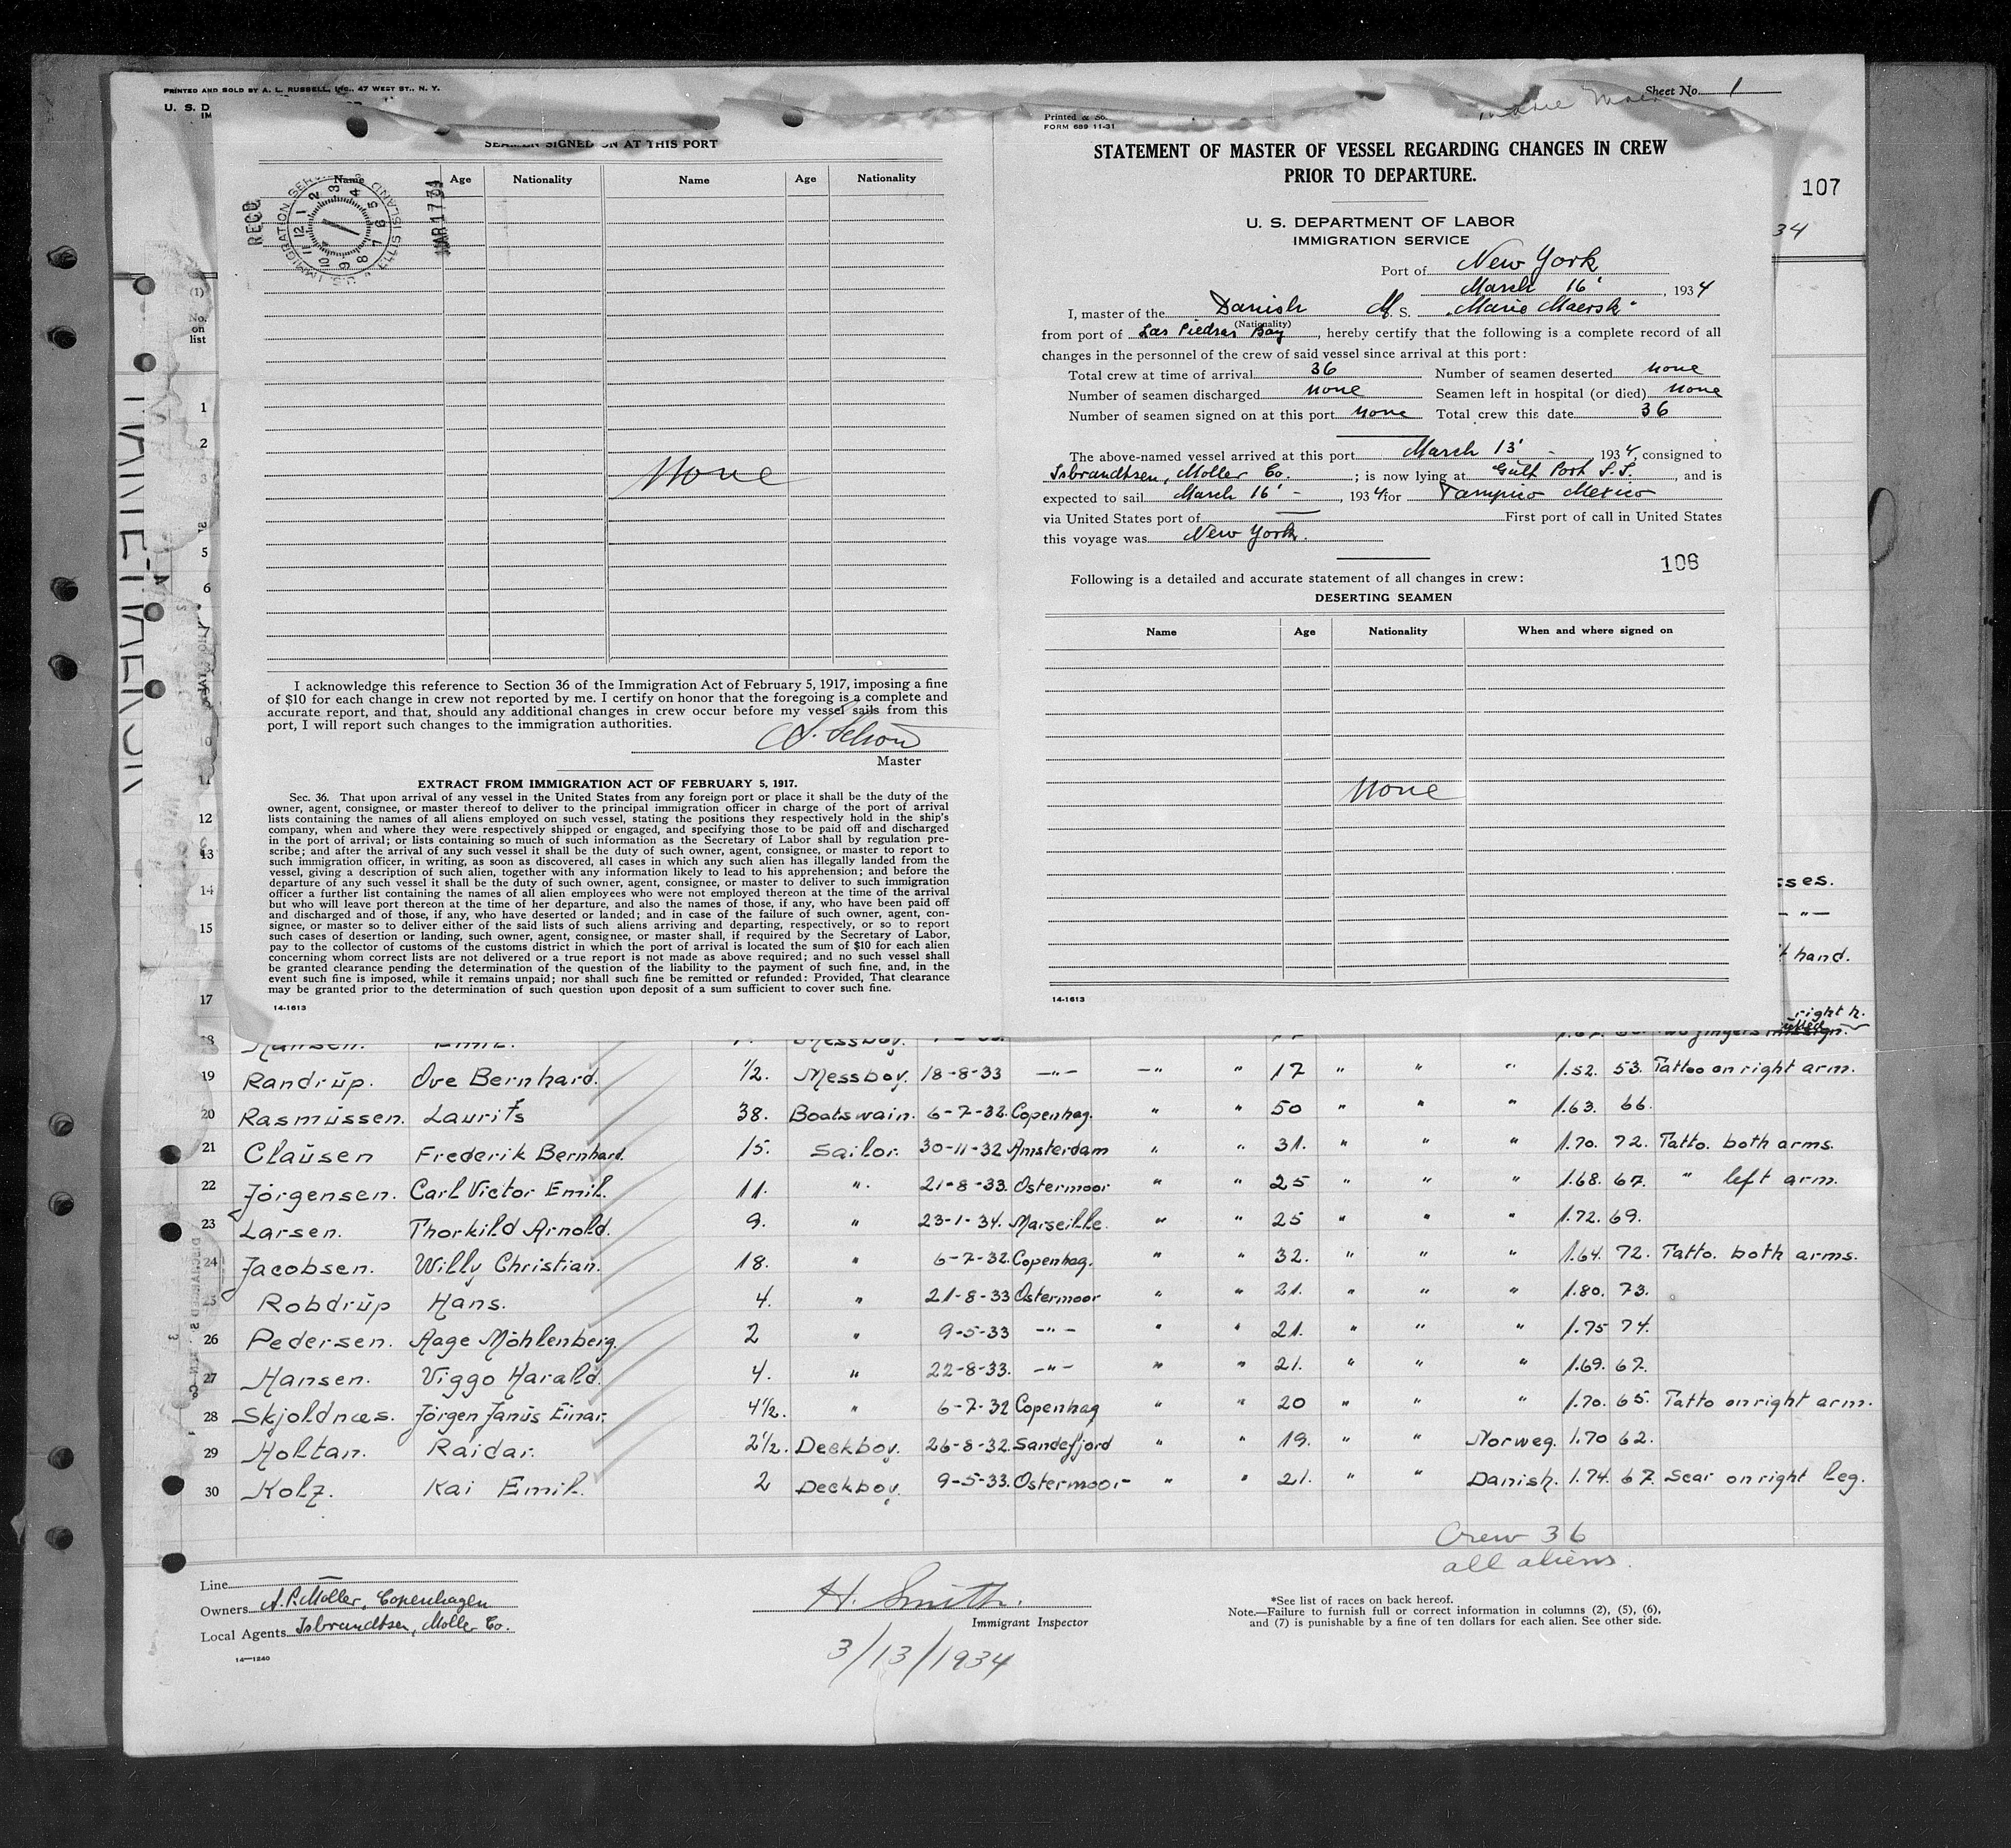 PRINTED AND SOLD BY A. L. RUSSELL, INC., 47 WEST ST., N. Y.
U. S. D
IM
SEAMEN SIGNED ON AT THIS PORT
Name Age Nationality Name Age Nationality
RECD
MAR 17 34
None
I acknowledge this reference to Section 36 of the Immigration Act of February 5, 1917, imposing a fine
of $10 for each change in crew not reported by me. I certify on honor that the foregoing is a complete and
accurate report, and that, should any additional changes in crew occur before my vessel sails from this
port, I will report such changes to the immigration authorities.
Master
EXTRACT FROM IMMIGRATION ACT OF FEBRUARY 5, 1917.
Sec. 36. That upon arrival of any vessel in the United States from any foreign port or place it shall be the duty of the
owner, agent, consignee, or master thereof to deliver to the principal immigration officer in charge of the port of arrival
lists containing the names of all aliens employed on such vessel, stating the positions they respectively hold in the ship's
company, when and where they were respectively shipped or engaged, and specifying those to be paid off and discharged
in the port of arrival; or lists containing so much of such information as the Secretary of Labor shall by regulation pre-
scribe; and after the arrival of any such vessel it shall be the duty of such owner, agent, consignee, or master to report to
such immigration officer, in writing, as soon as discovered, all cases in which any such alien has illegally landed from the
vessel, giving a description of such alien, together with any information likely to lead to his apprehension; and before the
departure of any such vessel it shall be the duty of such owner, agent, consignee, or master to deliver to such immigration
officer a further list containing the names of all alien employees who were not employed thereon at the time of the arrival
but who will leave port thereon at the time of her departure, and also the names of those, if any, who have been paid off
and discharged and of those, if any, who have deserted or landed; and in case of the failure of such owner, agent, con-
signee, or master so to deliver either of the said lists of such aliens arriving and departing, respectively, or so to report
such cases of desertion or landing, such owner, agent, consignee, or master shall, if required by the Secretary of Labor,
pay to the collector of customs of the customs district in which the port of arrival is located the sum of $10 for each alien
concerning whom correct lists are not delivered or a true report is not made as above required; and no such vessel shall
be granted clearance pending the determination of the question of the liability to the payment of such fine, and, in the
event such fine is imposed, while it remains unpaid; nor shall such fine be remitted or refunded: Provided, That clearance
may be granted prior to the determination of such question upon deposit of a sum sufficient to cover such fine.
14-1613
Sheet No. 1
Printed & So
FORM 689 11-31
STATEMENT OF MASTER OF VESSEL REGARDING CHANGES IN CREW
PRIOR TO DEPARTURE.
107
34
U. S. DEPARTMENT OF LABOR
IMMIGRATION SERVICE
Port of New York
March 16', 1934
I, master of the Danish M. S. "Marie Maersk"
(Nationality)
from port of Las Piedras Bay, hereby certify that the following is a complete record of all
changes in the personnel of the crew of said vessel since arrival at this port:
Total crew at time of arrival 36 Number of seamen deserted none
Number of seamen discharged none Seamen left in hospital (or died) none
Number of seamen signed on at this port none Total crew this date 36
The above-named vessel arrived at this port March 13' - , 1934, consigned to
Isbrandtsen, Moller Co. ; is now lying at Gulf Port S.I. , and is
expected to sail March 16' - , 1934 for Tampico Mexico
via United States port of — First port of call in United States
this voyage was New York.
108
Following is a detailed and accurate statement of all changes in crew:
DESERTING SEAMEN
Name Age Nationality When and where signed on
None
14-1613
(1)
No.
on
list
1
2
3
5
6
12
13
14
15
17
sses.
— " —
t hand.
right h.
18 Hansen. Emil. Messboy.
19 Randrup. Ove Bernhard. 1/2. Messboy. 18-8-33 —"— —" " 17 " " " 1.52. 53. Tattoo on right arm.
20 Rasmüssen. Laurits 38. Boatswain. 6-7-32. Copenhag. " " 50 " " " 1.63. 66.
21 Claüsen Frederik Bernhard. 15. Sailor. 30-11-32 Amsterdam " " 31. " " " 1.70. 72. Tatto. both arms.
22 Jörgensen. Carl Victor Emil. 11. ". 21-8-33. Ostermoor " " 25 " " " 1.68. 67. " left arm.
23 Larsen. Thorkild Arnold. 9. " 23-1-34. Marseille. " " 25 " " " 1.72. 69.
24 Jacobsen. Willy Christian. 18. " 6-7-32. Copenhag. " " 32. " " " 1.64. 72. Tatto. both arms.
25 Robdrüp Hans. 4. " 21-8-33 Ostermoor " " 21. " " " 1.80. 73.
26 Pedersen. Aage Möhlenberg. 2 " 9-5-33 —"— " " 21. " " " 1.75 74.
27 Hansen. Viggo Harald. 4. " 22-8-33. —"— " " 21. " " " 1.69. 67.
28 Skjoldnæs. Jörgen Janüs Einar. 4 1/2. " 6-7-32 Copenhag " " 20 " " " 1.70. 65. Tatto on right arm.
29 Holtan. Raidar. 2 1/2. Deckboy. 26-8-32. Sandefjord " " 19. " " Norweg. 1.70 62.
30 Kolz. Kai Emil. 2 Deckboy. 9-5-33. Ostermoor - " " 21. " " Danish. 1.74. 67. Scar on right leg.
Crew 36
all aliens.
Line —
Owners A.P. Moller, Copenhagen
Local Agents Isbrandtsen, Moller Co.
14—1240
H. Smith.
Immigrant Inspector
3/13/1934
*See list of races on back hereof.
Note.—Failure to furnish full or correct information in columns (2), (5), (6),
and (7) is punishable by a fine of ten dollars for each alien. See other side.